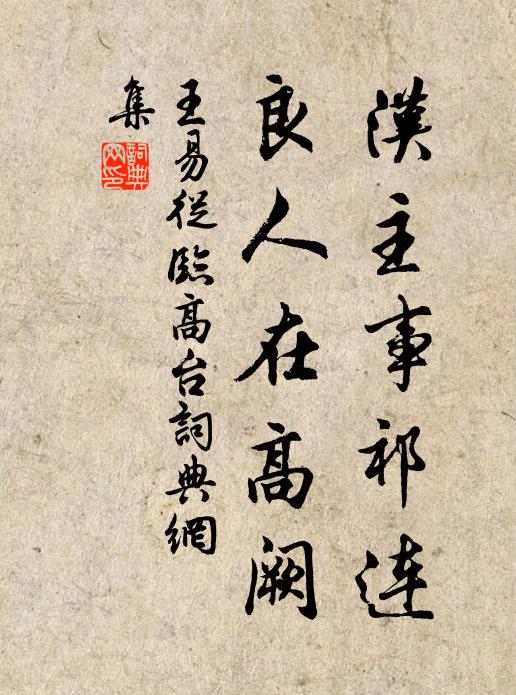 漢主事祁連
良人在高闕
王易從臨高台詞典網
集
詞典
网印